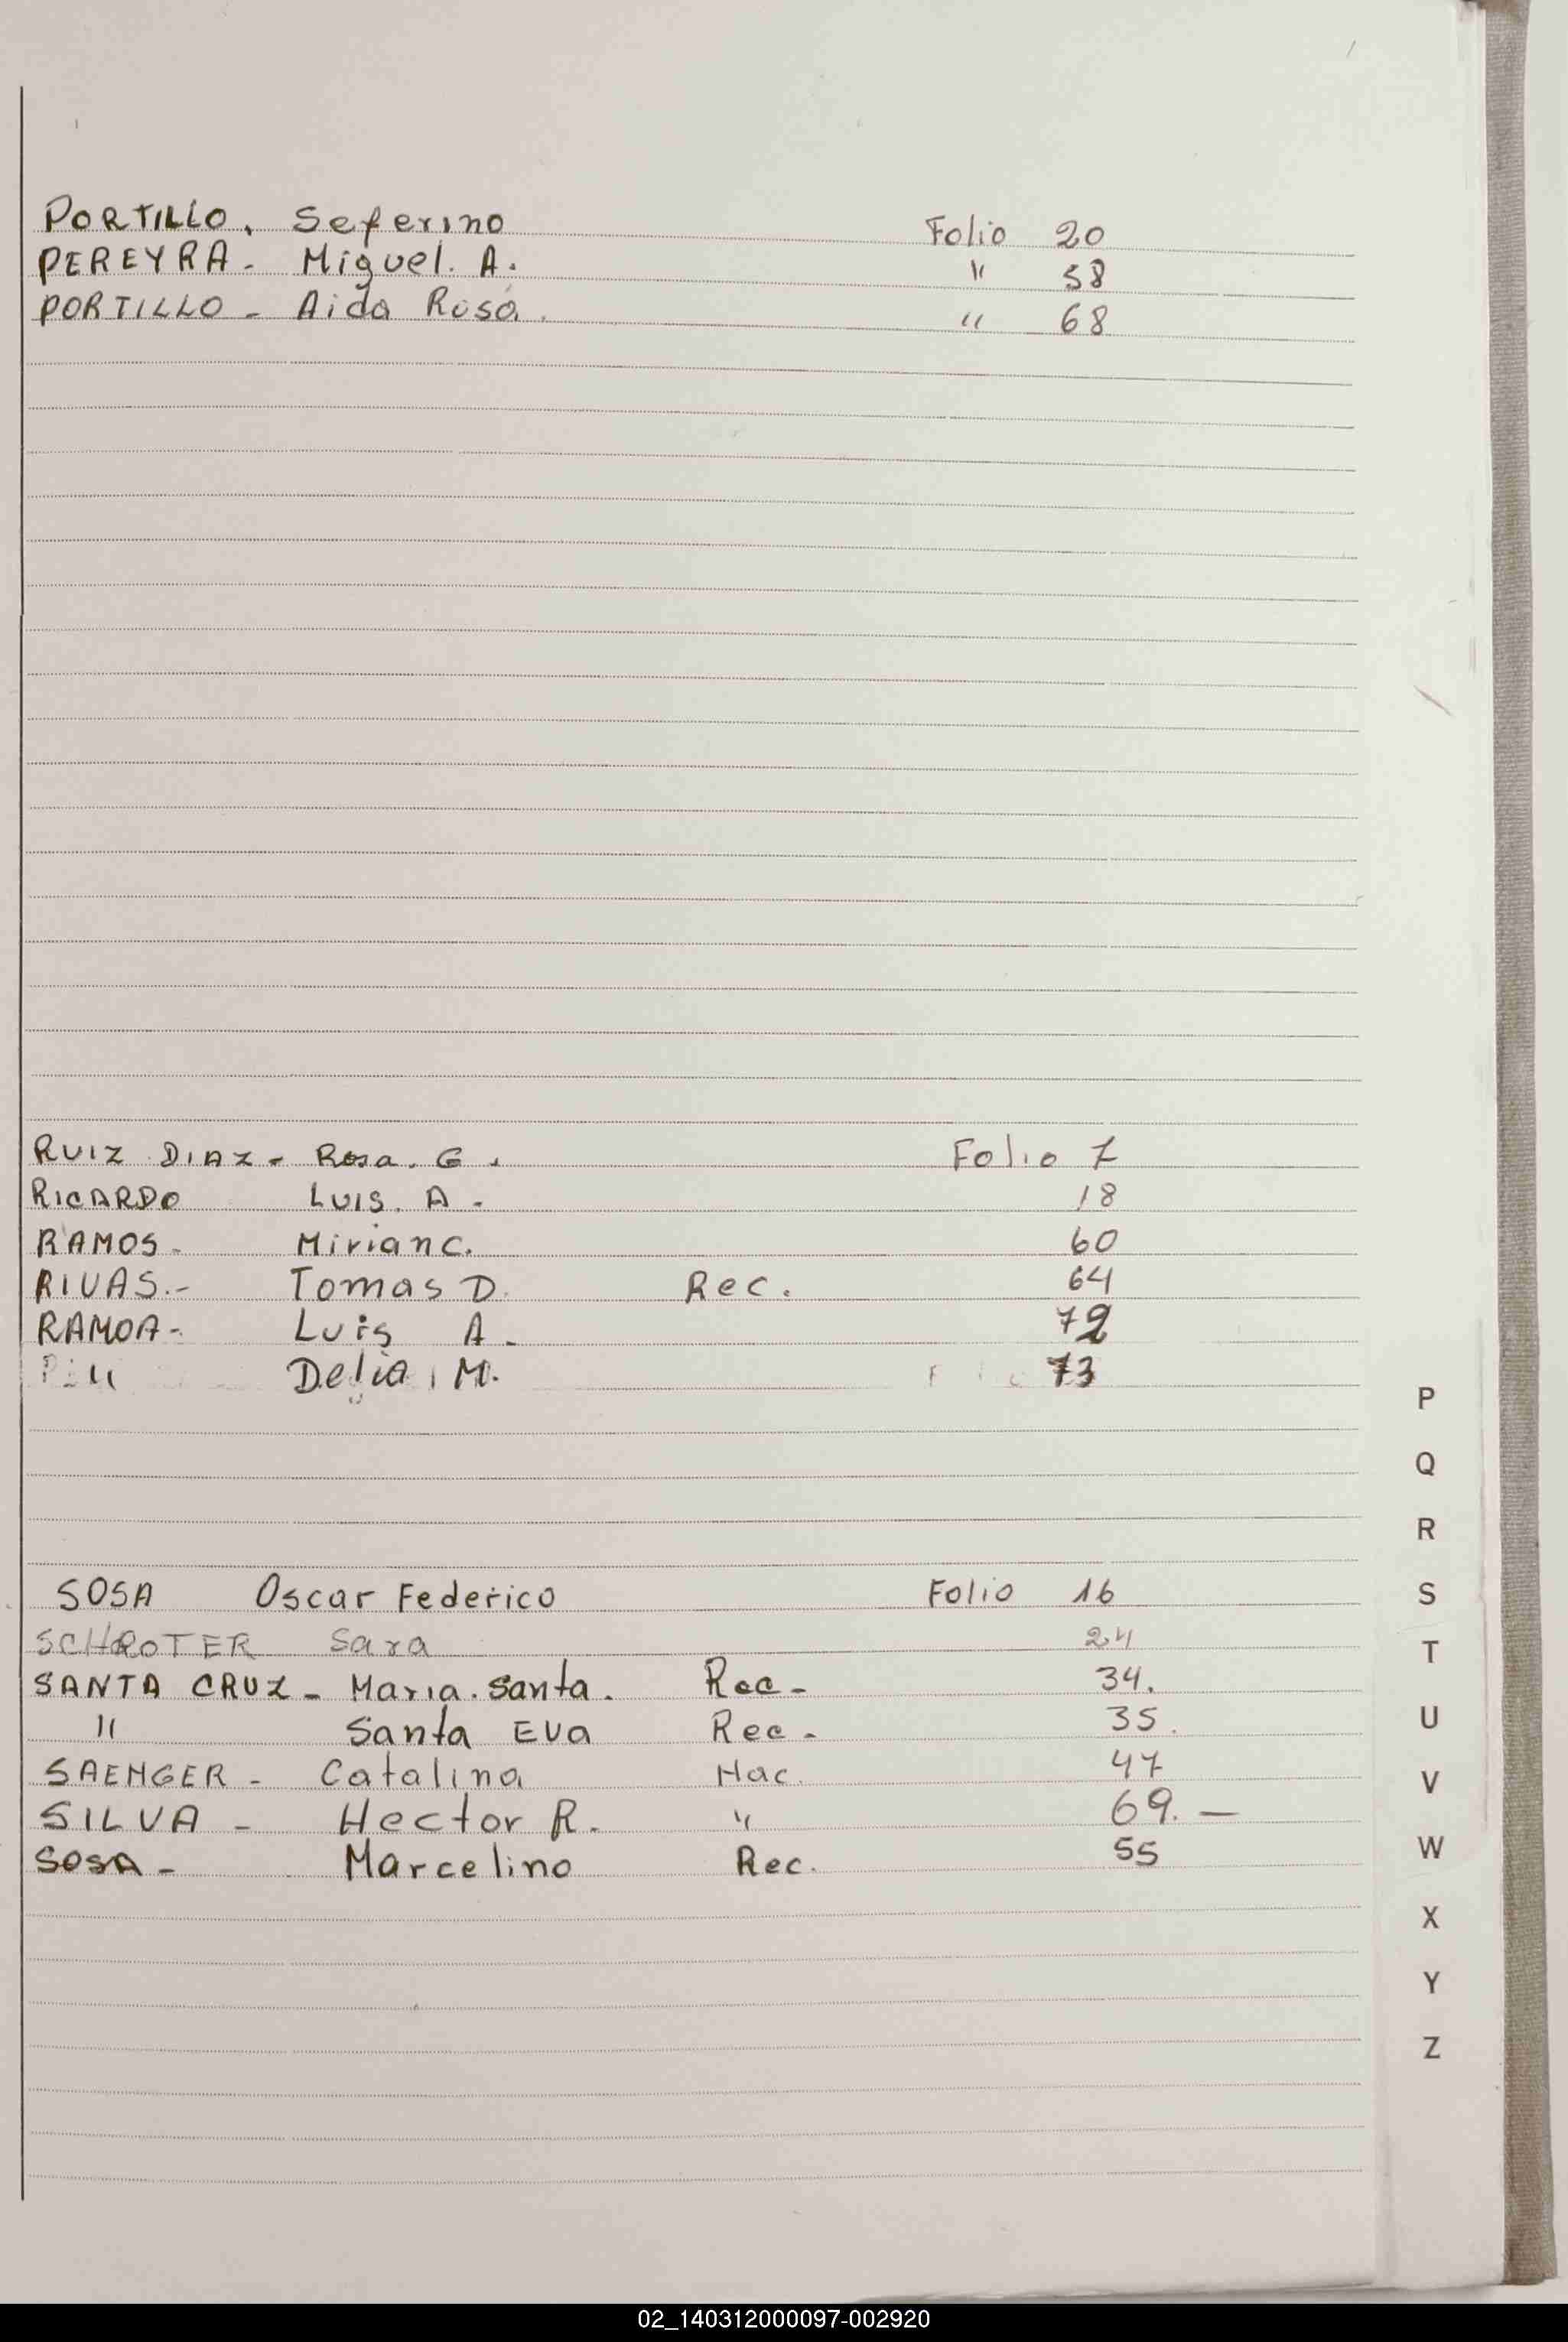 PORTILLO, Seferino Folio 20
PEREYRA - Miguel. A. " 58
PORTILLO - Aida Rosa. " 68
RUIZ DIAZ - Rosa. G. Folio 7
RICARDO LUIS. A - 18
RAMOS - Mirian C. 60
RIVAS.- Tomas D. Rec. 64
RAMOA - Luis A - 72
" Delia, M. 73
SOSA Oscar Federico Folio 16
SCHROTER Sara 24
SANTA CRUZ - Maria. Santa. Rec - 34.
" Santa EVA Rec - 35.
SAENGER - Catalina Nac. 47
SILVA - Hector R. " 69. -
SOSA - Marcelino Rec. 55
P
Q
R
S
T
U
V
W
X
Y
Z
02_140312000097-002920